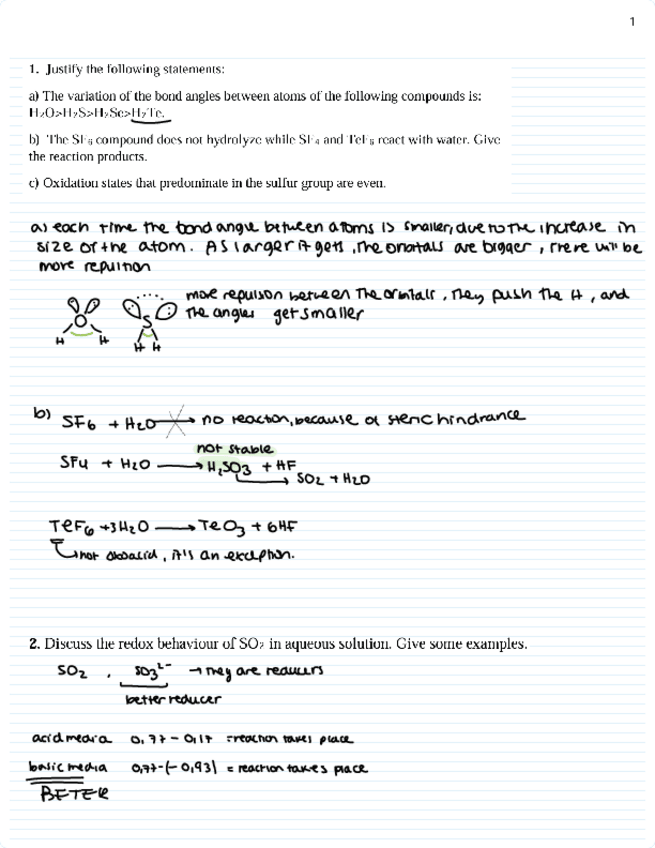 1
1. Justify the following statements:
a) The variation of the bond angles between atoms of the following compounds is:
H₂O>H₂S>H₂Se>H₂Te.
b) The SF₆ compound does not hydrolyze while SF₄ and TeF₆ react with water. Give
the reaction products.
c) Oxidation states that predominate in the sulfur group are even.
a) each time the bond angle between atoms is smaller, due to the increase in
size of the atom. As larger it gets, the orbitals are bigger, there will be
more repultion
more repulsion between the orbitals, they push the H, and
the angles get smaller
O
S
H H
H H
b) SF6 + H2O → no reaction, because of steric hindrance
not stable
SF4 + H2O → H2SO3 + HF
→ SO2 + H2O
TeF6 +3H2O → TeO3 + 6HF
→ not it's an exception.
2. Discuss the redox behaviour of SO₂ in aqueous solution. Give some examples.
SO2 , SO3²⁻ → they are reducers
better reducer
acid media 0,77 - 0,17 = reaction takes place
basic media 0,77-(-0,93) = reaction takes place
BETTER